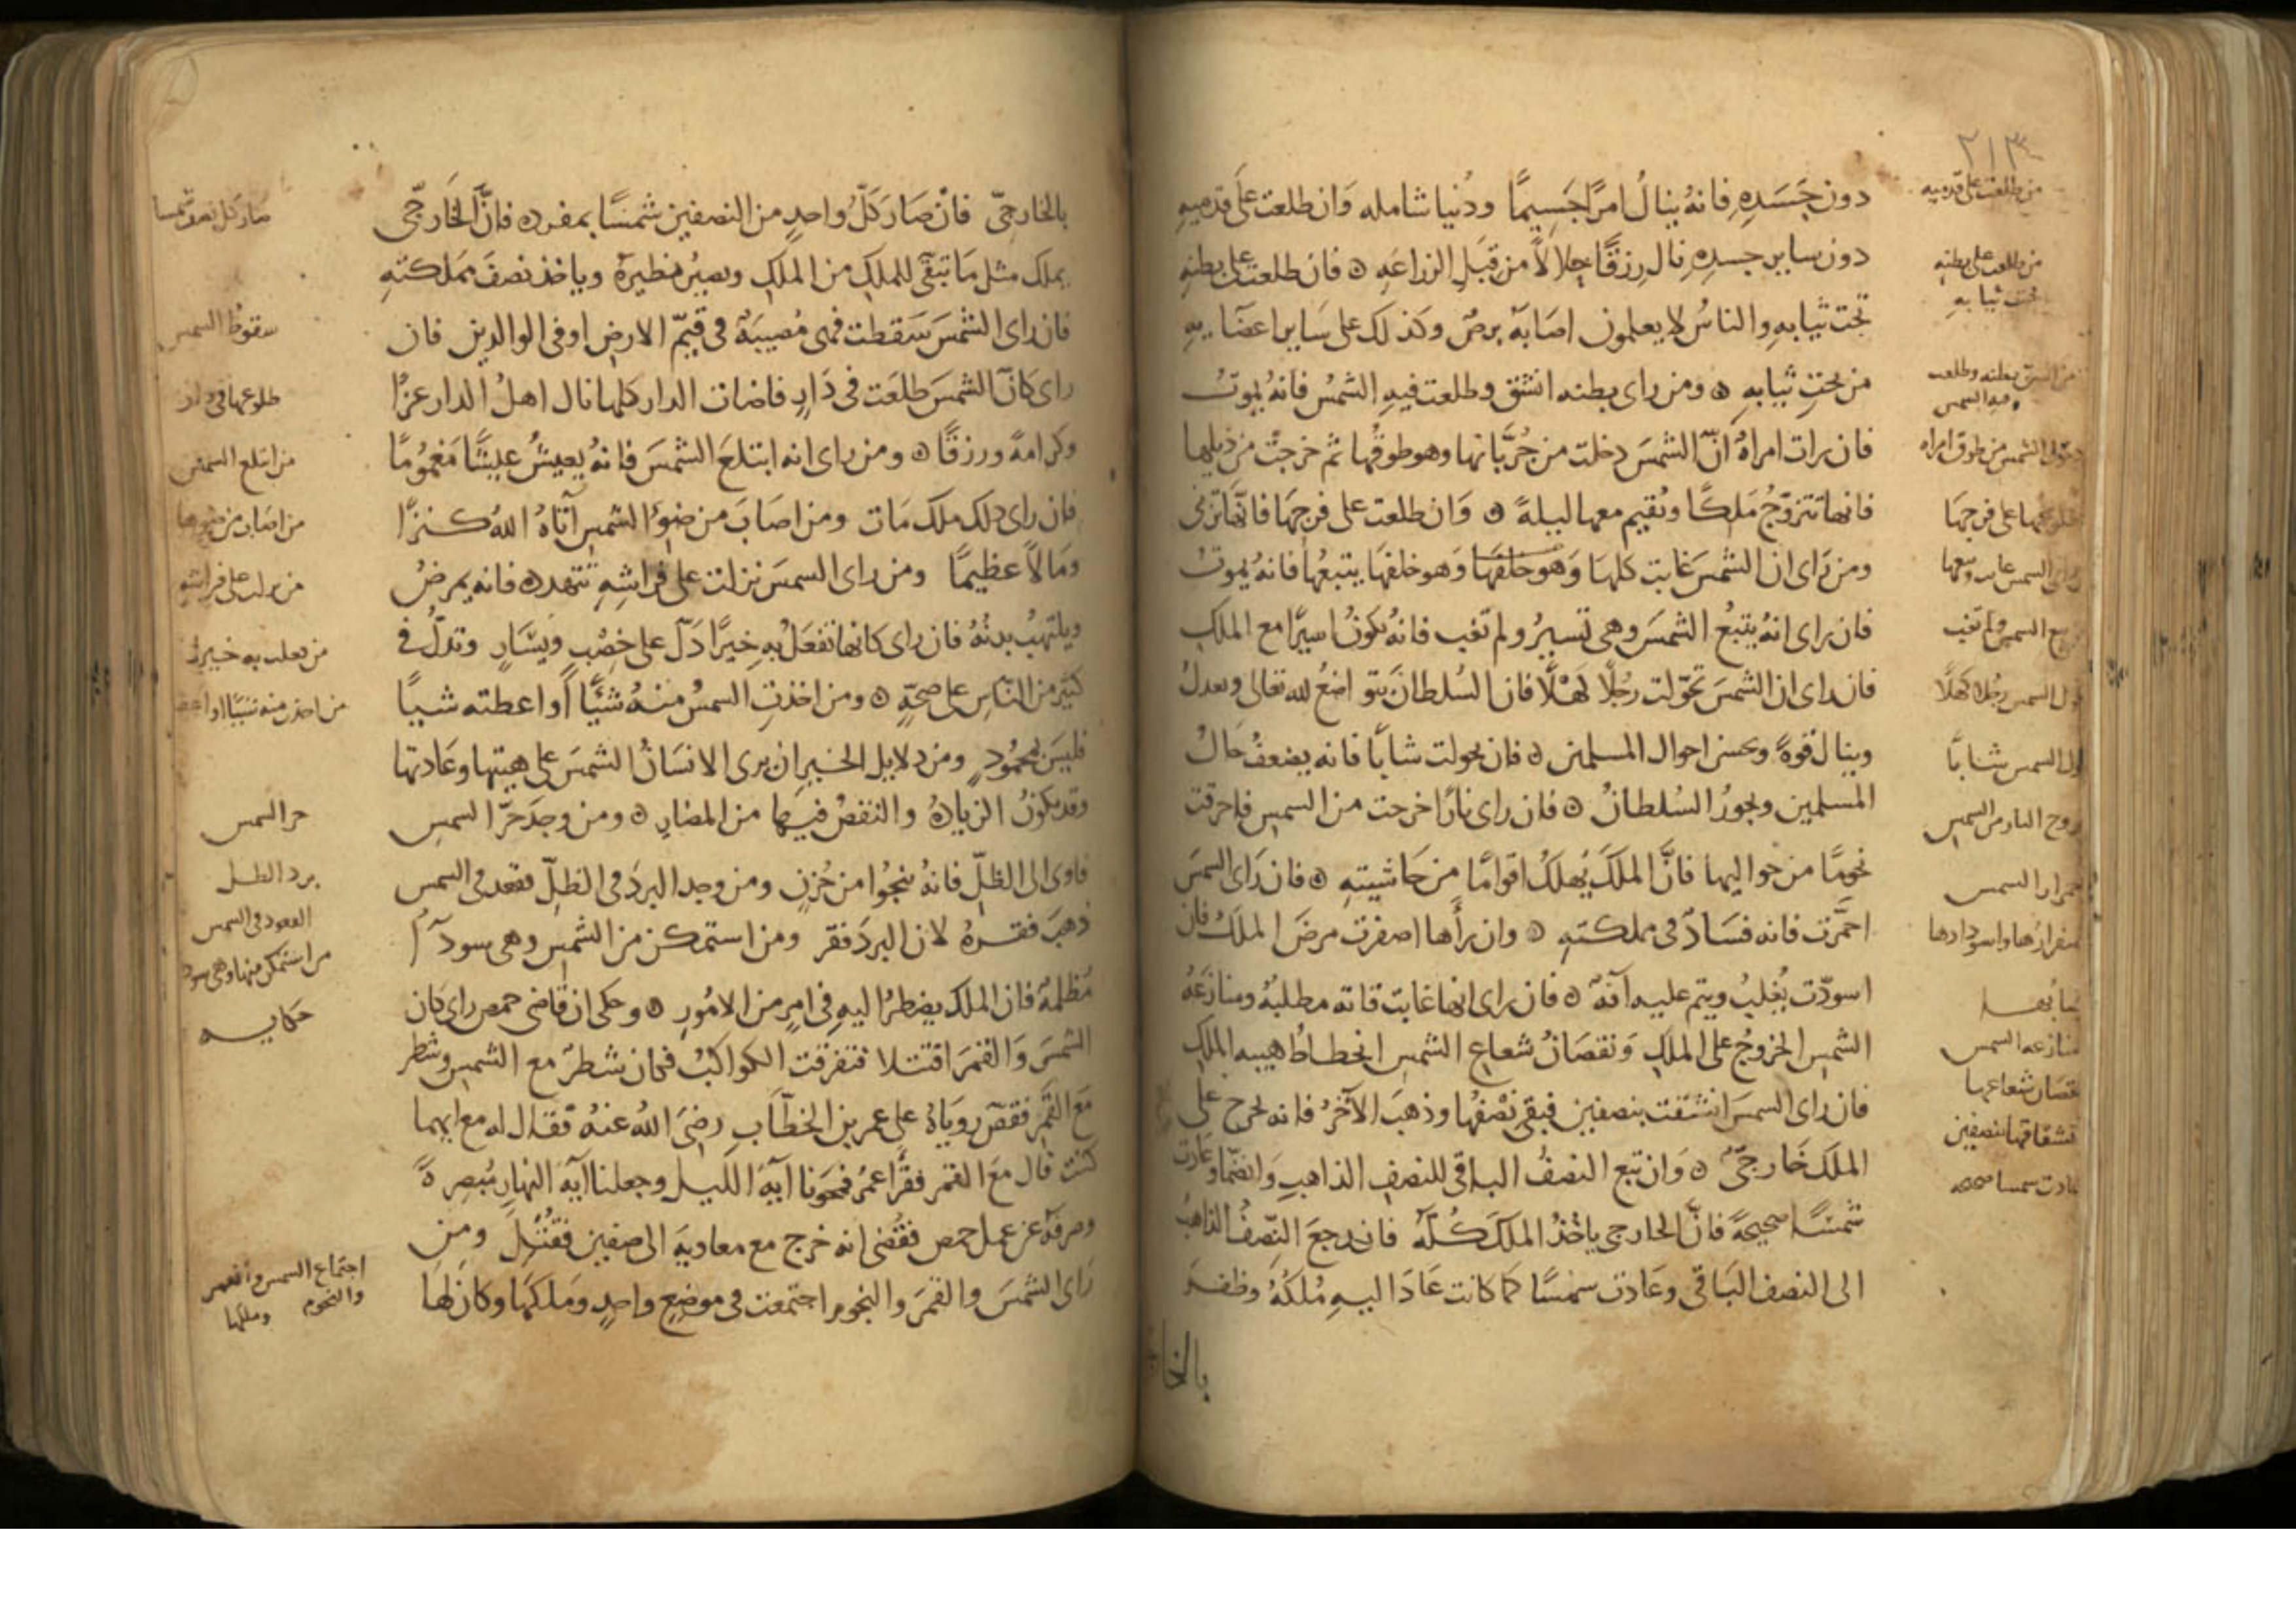 ٢١٣
دون جَسَدِهِ فانهُ ينالُ امرًا جَسِيمًا ودُنيا شامله وَان طلعت على قدميهِ
دون ساير جسدِهِ نال رِزقًا حلالاً من قبَلِ الزراعَهِ ۞ فان طلعت على بطنِهِ
تحت ثيابهِ والناسُ لا يعلمون اصَابَهُ برصٌ وكذلك على سَاير اعضَايهِ
من تحتِ ثيابهِ ۞ ومن راى بطنه انشق وطلعت فيهِ الشمسُ فانهُ يموتُ
فان رات امراهٌ انَّ الشمسَ دخلت من جُرُبَّانها وهو طوقُها ثم خرجتْ من ذيلِها
فانها تتزوّجُ مَلِكًا ويُقيم معها ليلهً ۞ وَان طلعت على فرجِهَا فانَّها تزنى
ومن رَاى ان الشمسَ غابت كلها وَهو خلفهَا وَهو خلفهَا يتبعُها فانهُ يموتُ
فان راى انهُ يتبعُ الشمسَ وهى تَسيرُ ولم تغب فانهُ يكونُ اسيرًا مع الملكِ
فان راى ان الشمسَ تحوّلت رجُلًا كَهْلًا فان السُلطانَ يتواضعُ لله تعالى ويعدلُ
وينال قوهً وتحسن احوال المسلمين ۞ فان تحولت شابًا فانه يضعفُ حَالُ
المسلمين ويجورُ السُلطانُ ۞ فان راى نارًا خرجت من الشمسِ فاحرقت
نجومًا من حواليها فانَّ الملكَ يُهلكُ اقوامًا من حَاشيتهِ ۞ فان رَاى الشمسَ
احمَّرت فانه فسَادٌ فى مملكتهِ ۞ وان رأها اصفرت مرضَ الملكُ فان
اسودّت يُغلبُ ويتم عليه آفهٌ ۞ فان راى انها غابت فاته مطلبهُ ومنازَعَهُ
الشمسِ الخروجُ على الملكِ وَنقصَانُ شعاعِ الشمسِ انحطاطُ هيبه الملكِ
فان راى الشمسَ انشقت بنصفينِ فبقى نصْفها وذهبَ الآخرُ فانه يخرج على
الملك خَارجىٌّ ۞ وَان تبع النصفُ الباقى للنصفِ الذاهبِ وَانضمّا وعَادت
شمسًا صحيحهً فانَّ الخارجى ياخُذُ الملكَ كُلَّهُ فان رجعَ النِصفُ الذاهبُ
الى النصف البَاقى وعَادت شمسًا كما كانت عَادَ اليهِ مُلكُهُ وظفرَ
بالخا
من طلعت على قدميه
من طلعت على بطنهِ
تحت ثيابهِ
من انشق بطنه وطلعت
فيه الشمس
الشمس من طوق امراه
على فرجهَا
الشمس ولم تغب
الشمس رجُلا كهلًا
الشمس شابًا
النار من الشمسِ
الشمس
واسودادها
منازعه الشمس
شعاعها
بنصفين
شمسا صحيحه
بالخارجىّ فانْ صَارَ كلُّ واحدٍ من النصفينِ شمسًا بمفرده فانَّ الخَارجىّ
يملك مثل مَا تبقّى للملكِ من الملكِ ويصيرُ نظيرهُ وياخذ نصفَ مملكتهِ
فان راى الشمسَ سَقطت فهى مُصيبَهٌ فى قيّمِ الارضِ او فى الوالدين فان
راى كانّ الشمسَ طلعَت فى دَارٍ فاضات الدار كلها نال اهلُ الدار عزًا
وكرامهً ورزقًا ۞ ومن راى انه ابتلعَ الشمسَ فانهُ يعيشُ عيشًا مَغمُومًا
فان راى ذلك ملك مَات ومن اصَابَ من ضوءِ الشمسِ آتاهُ اللهُ كنزًا
ومَالاً عظيمًا ومن راى الشمسَ نزلت على فراشِهِ فانه يمرضُ
ويلتهبُ بدنُهُ فان راى كانها تفعَلُ بهِ خيرًا دَلّ على خِصْبٍ ويسَارٍ وتدلُّ فى
كثيرٍ من النّاسِ على صحّهٍ ۞ ومن اخذتِ الشمسُ منهُ شيًّا أو اعطته شيًا
فليسَ بمحمُودٍ ومن دلايل الخيرِ ان يرى الانسَانُ الشمسَ على هيتها وعَادتها
وقد يكونُ الزيادهُ والنقصُ فيها من المضارِ ۞ ومن وجدَ حَرّ الشمسِ
فاوى الى الظلِّ فانهُ ينجُوا من حُزنٍ ومن وجد البردَ فى الظلِّ فقعد فى الشمس
ذهبَ فقرهُ لان البردَ فقر ومن استمكن من الشمسِ وهى سودآءُ
مُظلمهٌ فان الملك يضطرُ اليهِ فى امرٍ من الامُورِ ۞ وحكى ان قاضى حمص راى كان
الشمسَ وَالقمرَ اقتتلا فتفرقت الكواكبُ فكان شطرٌ مع الشمسِ وشطر
مَعَ القمرِ فقصّ روياهُ على عمر بن الخطّابِ رضىَ اللهُ عنهُ فقال له مع ايهما
كنت قال مَعَ القمر فقرَأ عمرُ فمحَونا آيهَ الليل وجعلنا آيهَ النهارِ مُبصرهً
وصرفهُ عن عمل حمص فقُضى انه خرج مع معاويهَ الى صفين فقُتلَ ومن
رَاى الشمسَ والقمرَ والنجوم اجتمعت فى موضعٍ واحدٍ ومَلكهَا وكانَ لهَا
سقوطُ الشمس
طلوعها فى دار
من ابتلع الشمس
من اصاب من ضوءها
من نزلت على فراشهِ
من فعلت به خيرًا
من اخذت منه شيًا او اعطته
حر الشمس
برد الظل
القعود فى الشمس
من استمكن منها وهى سودا
حكايه
اجتماع الشمس والقمر
والنجوم وملكها